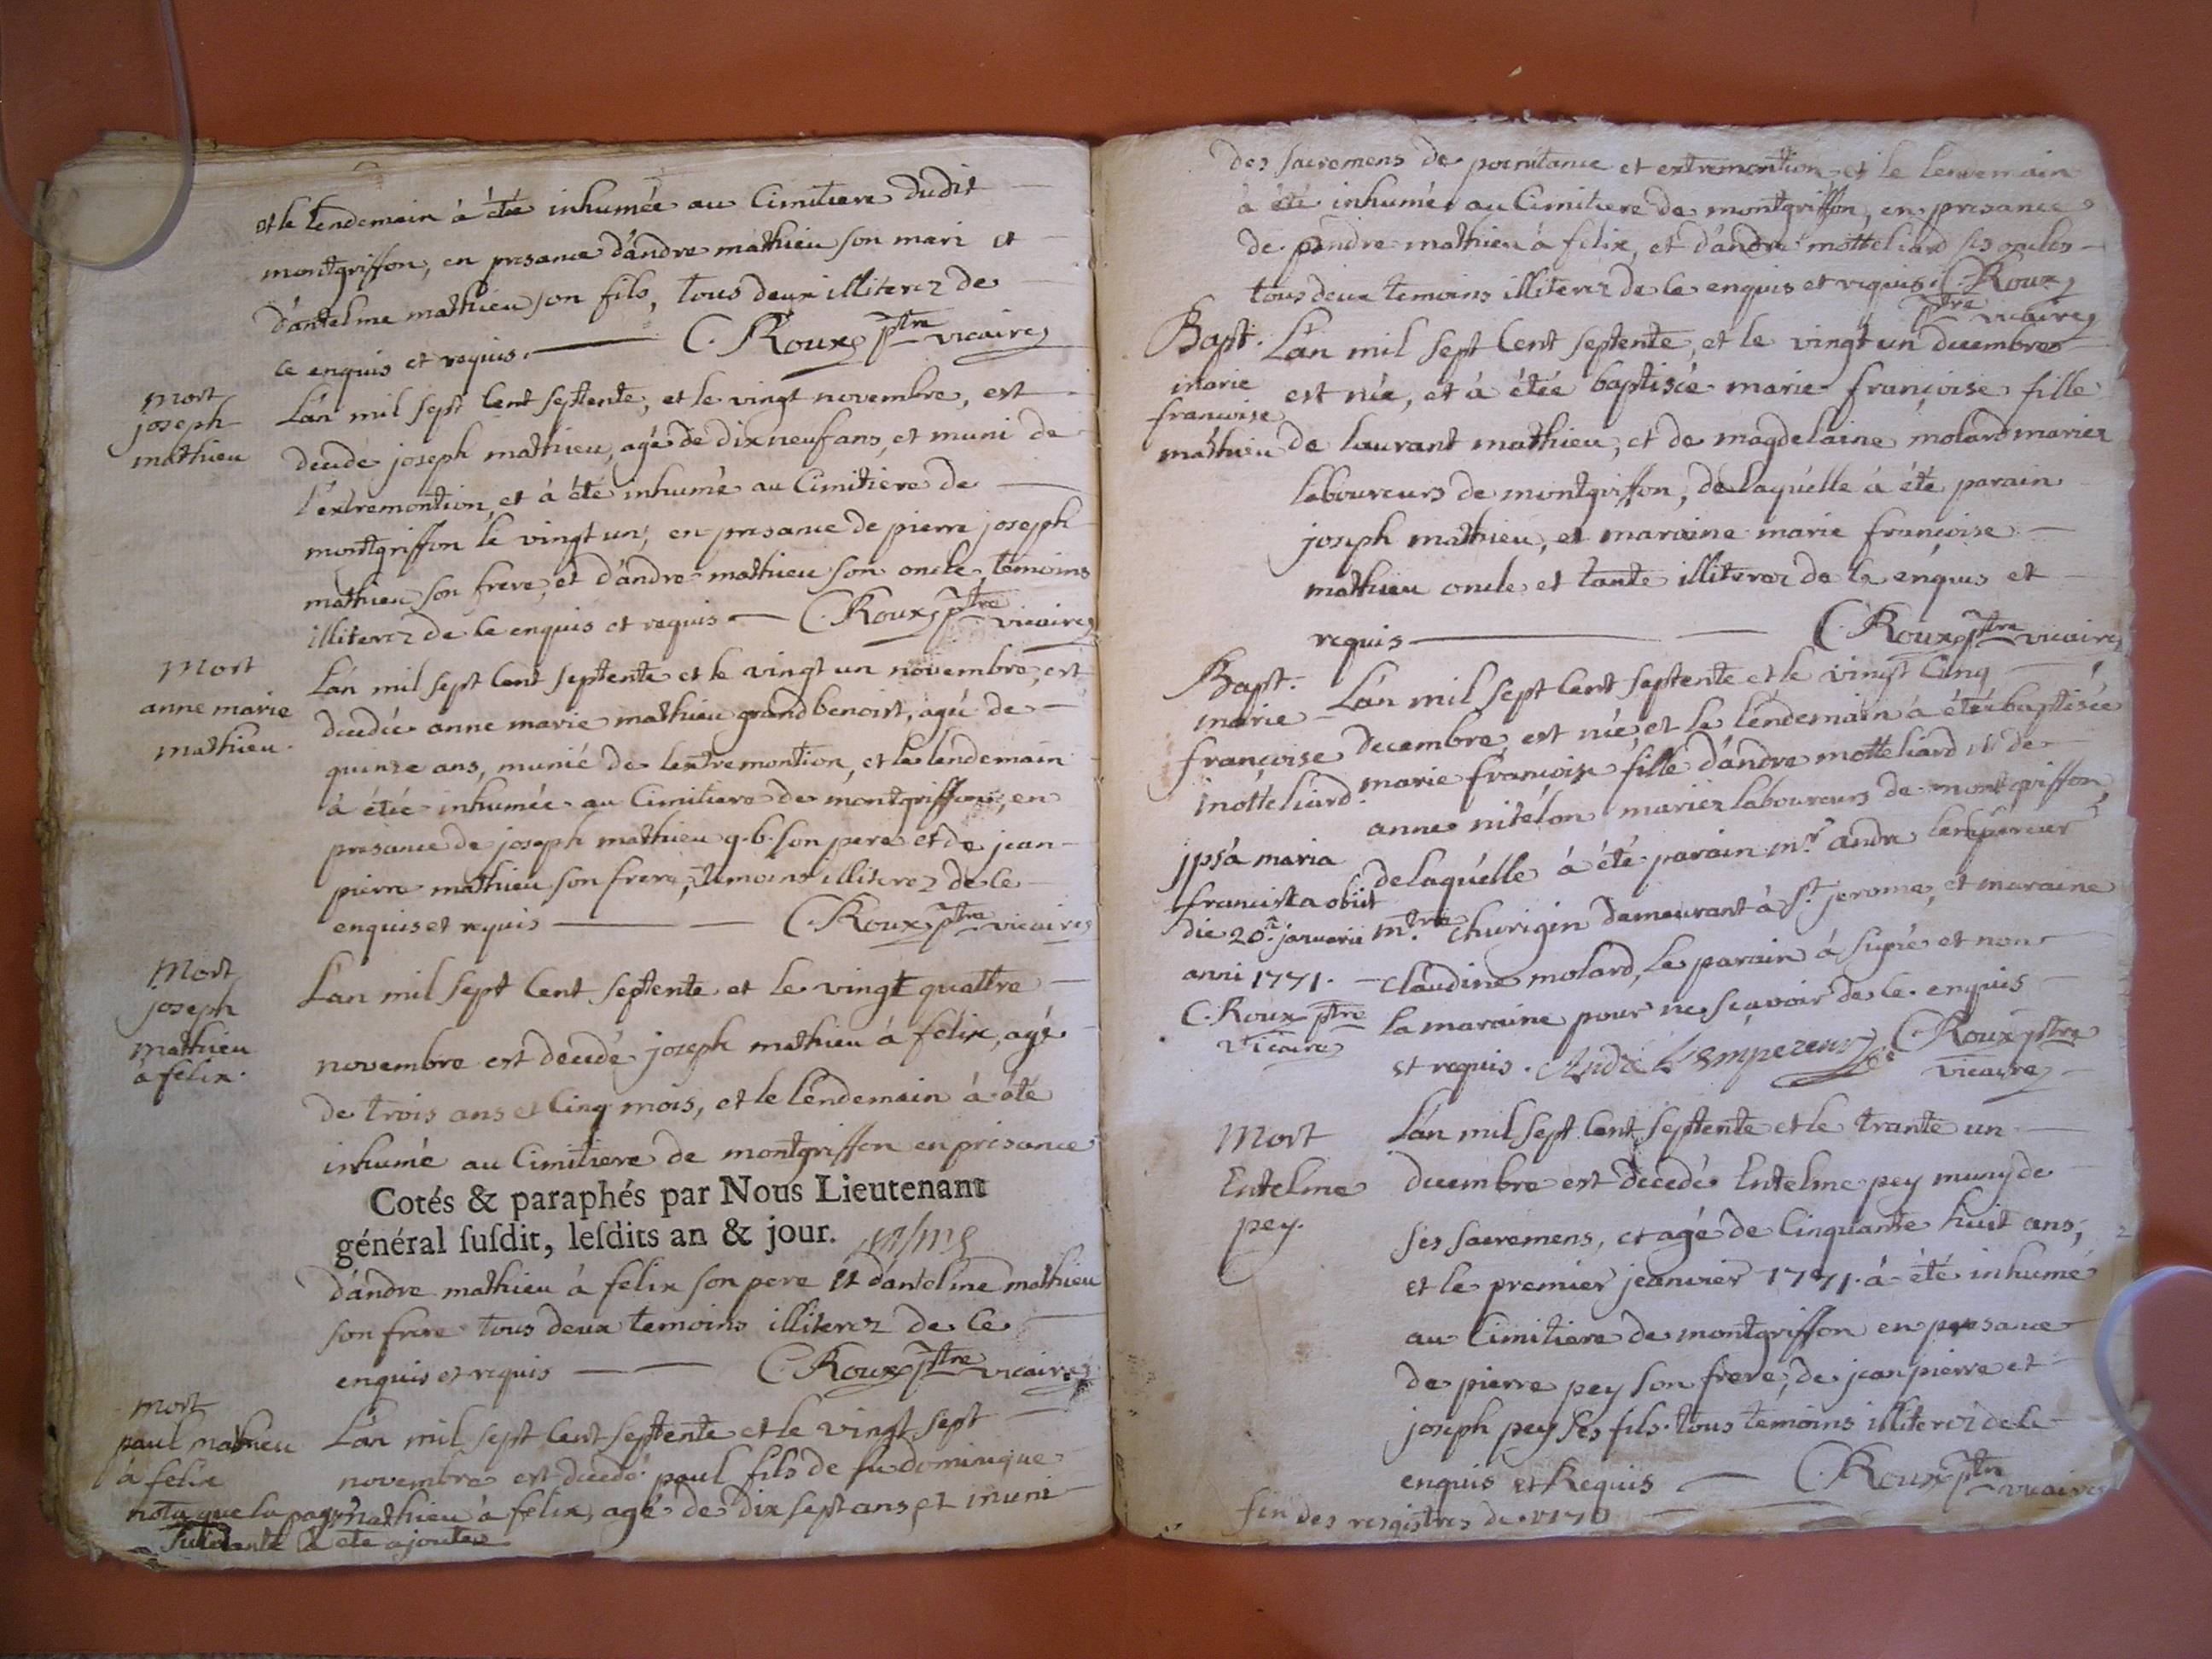 et le lendemain à étée inhumée au Cimitiere dudit
montgriffon, en presance d'andre mathieu son mari et
d'antelme mathieu son fils, tous deux illiterez de
ce enquis et requis. C. Roux ptre vicaire
mort
joseph
mathieu
L'an mil sept Cent septente, et le vingt novembre, est
decedé joseph mathieu, agé de dix neuf ans, et muni de
l'extremontion, et à été inhumé au Cimitiere de
montgriffon le vingt un, en presance de pierre joseph
mathieu son frere, et d'andre mathieu son oncle, temoins
illiterez de ce enquis et requis C. Roux ptre vicaire
Mort
anne marie
mathieu.
L'an mil sept Cent septente et le vingt un novembre, est
decedée anne marie mathieu grand benoist, agée de
quinze ans, munie de lextremontion, et le lendemain
à étée inhumée au Cimitiere de montgriffon, en
presance de joseph mathieu g.b. son pere et de jean
pierre mathieu son frere, temoins illiterez de ce
enquis et requis C. Roux ptre vicaire
Mort
joseph
mathieu
à felix.
L'an mil sept Cent septente et le vingt quattre
novembre est decedé joseph mathieu à felix, agé
de trois ans et Cinq mois, et le lendemain à été
inhumé au Cimitiere de montgriffon en presance
Cotés & paraphés par Nous Lieutenant
général susdit, lesdits an & jour.
d'andre mathieu à felix son pere et d'antelme mathieu
son frere tous deux temoins illiterez de ce
enquis et requis C. Roux ptre vicaire
mort
paul mathieu
à felix
L'an mil sept Cent septente et le vingt sept
novembre est decedé paul fils de fu dominique
mathieu à felix, agé de dix sept ans et muni
nota que la page
suivante à été ajoutée
des sacremens de poenitance et extremontion, et le lendemain
à été inhumé au Cimitiere de montgriffon, en presance
de andre mathieu à felix, et d'andre motteliard ses oncles
tous deux temoins illiterez de ce enquis et requis. C. Roux
ptre vicaire
Bapt.
marie
francoise
mathieu
L'an mil sept Cent septente, et le vingt un decembre
est née, et à étée baptisée marie françoise fille
de laurant mathieu, et de magdelaine molard mariez
laboureurs de montgriffon, de laquelle à été parain
joseph mathieu, et maraine marie françoise
mathieu oncle et tante illiterez de ce enquis et
requis C. Roux ptre vicaire
Bapt.
marie
françoise
motteliard.
L'an mil sept Cent septente et le vingt Cinq
decembre, est née, et le lendemain à étée baptisée
marie françoise fille d'andre motteliard et de
anne nitelon mariez laboureurs de montgriffon,
de laquelle à été parain mr. andre lempereur
mtre Churigin demeurant à st. jerome, et maraine
Claudine molard, le parain à signé et non
la maraine pour ne sçavoir de ce enquis
et requis. André Lempereur C. Roux ptre
vicaire
ipsa maria
francisca obiit
die 20a. januarii
anni 1771.
C. Roux ptre
vicaire
Mort
Entelme
pey.
L'an mil sept Cent septente et le trante un
decembre est decedé Entelme pey muny de
ses sacremens, et agé de Cinquante huit ans,
et le premier jeanvier 1771. à été inhumé
au Cimitiere de montgriffon en presance
de pierre pey son frere, de jean pierre et
joseph pey ses fils. tous temoins illiterez de ce
enquis et Requis C. Roux ptre vicaire
fin des resgistres de 1770